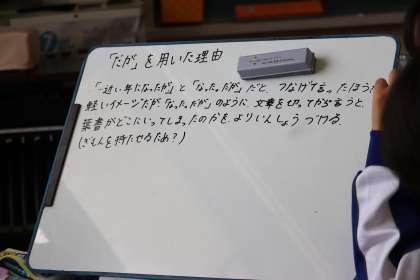 「だが」を用いた理由
「〜近い年になったが」と「なった。だが」だと、つなげて言ったほうが
軽いイメージだが「なった。だが」のように文章を切ってから言うと、
葉書がどこにいってしまったのかを、よりいんしょうづける。
(ぎもんを持たせるため?)